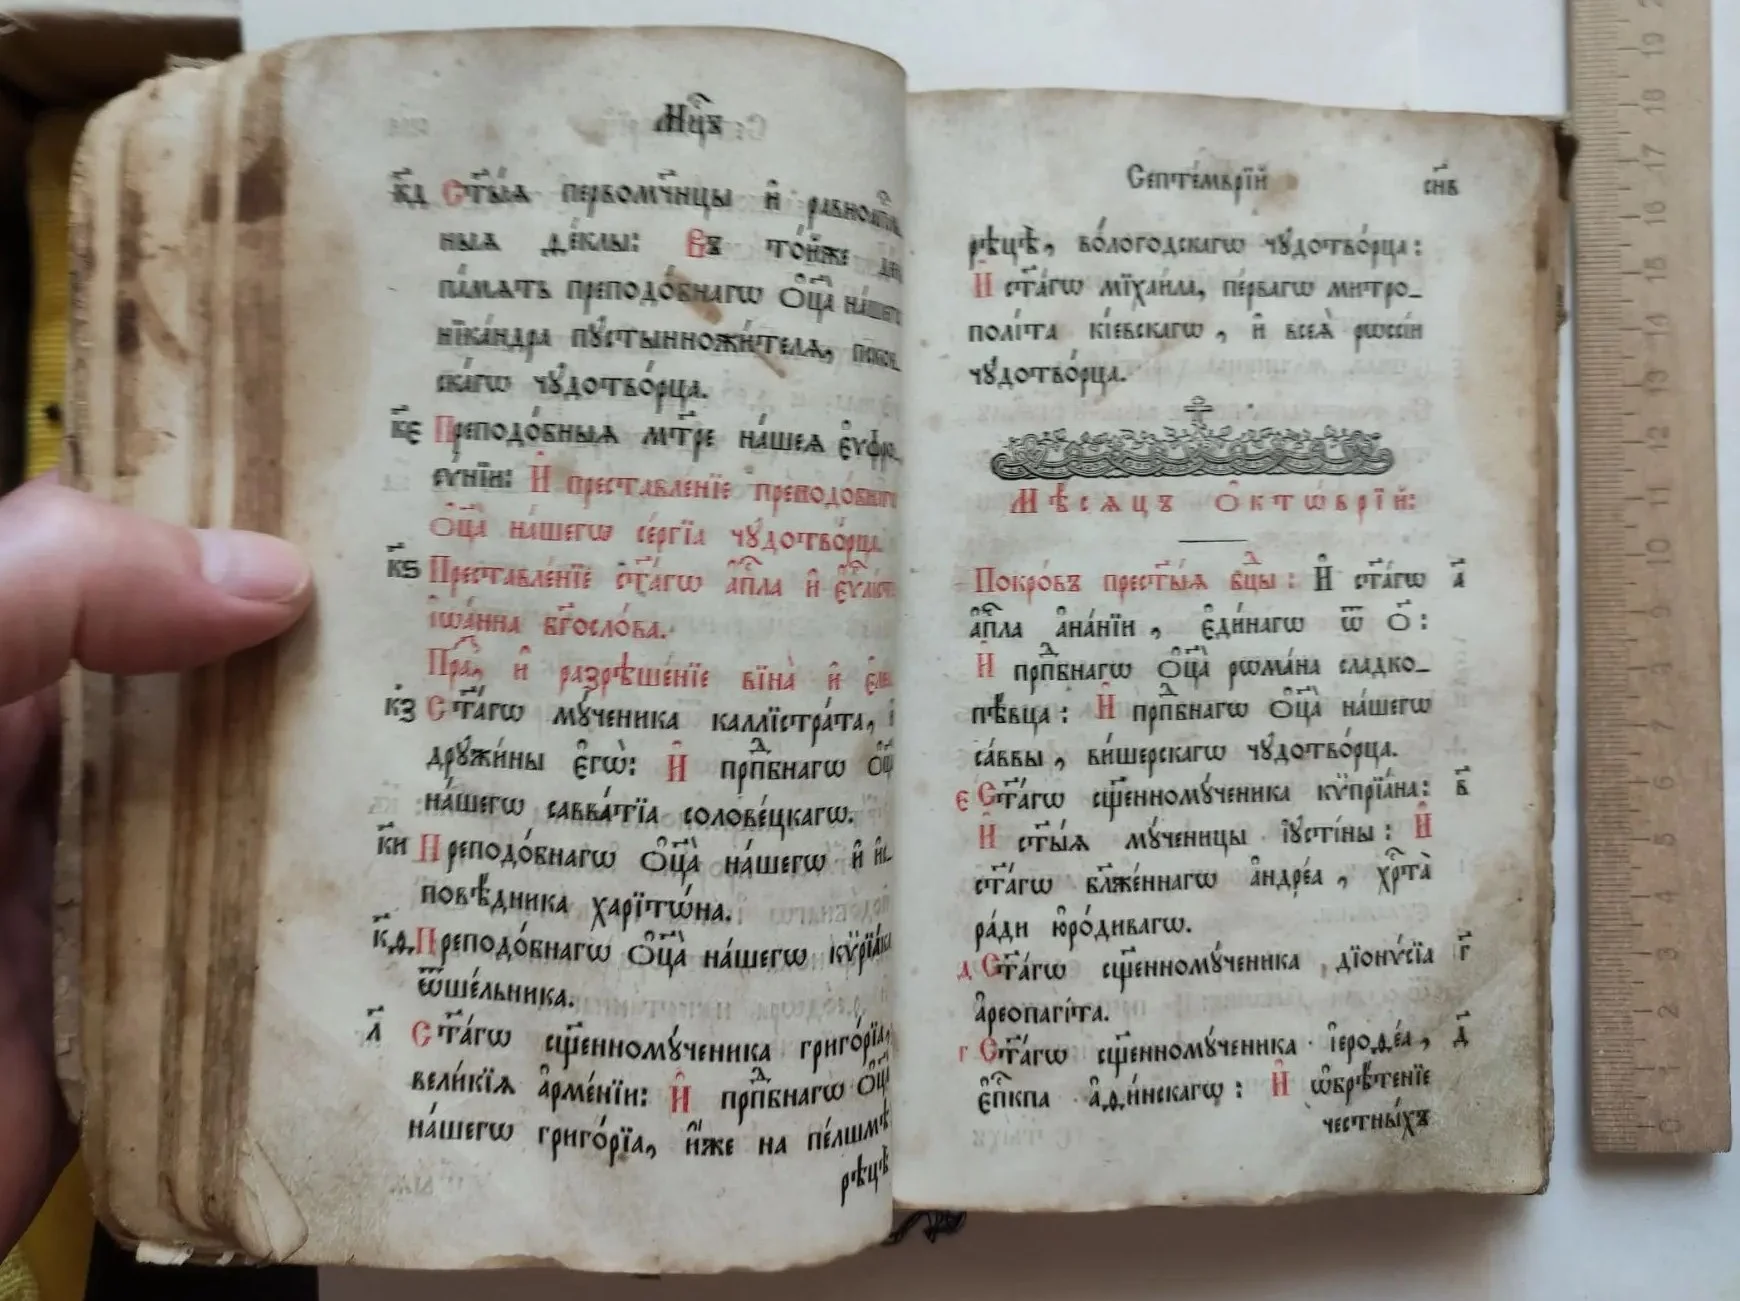 Мцⷭ҇ъ
к҃д Ст҃ы́ѧ первомч҃нцы и҆ равноапⷭ҇л
ныѧ ѳе́клы: Въ то́йже де
па́мѧть преподо́бнагѡ ѻ҆ц҃а̀ на́шегѡ
нїка́ндра пꙋстынножи́телѧ, псков
ска́гѡ чꙋдотво́рца.
к҃є Преподо́бныѧ мт҃ре на́шеѧ є҆ѵфро
сѵ́нїи: И҆ преставле́нїе преподо́бнагѡ
ѻ҆ц҃а̀ на́шегѡ се́ргїа чꙋдотво́рца.
к҃ѕ Преставле́нїе ст҃а́гѡ а҆пⷭ҇ла и҆ є҆ѵⷢ҇лїста
і҆ѡа́нна бг҃осло́ва.
Пра́, и҆ разрѣше́нїе вїна̀ и҆ є҆ле
к҃з Ст҃а́гѡ мꙋ́ченика каллїстра́та, и҆
дрꙋжи́ны є҆гѡ̀: И҆ прпⷣбнагѡ ѻ҆ц҃а̀
на́шегѡ савва́тїа солове́цкагѡ.
к҃и Преподо́бнагѡ ѻ҆ц҃а̀ на́шегѡ и҆ и҆с_
повѣ́дника харїтѡ́на.
к҃ѳ Преподо́бнагѡ ѻ҆ц҃а̀ на́шегѡ кѷрїа́ка
ѿше́льника.
л҃ Ст҃а́гѡ сщ҃енномꙋ́ченика григо́рїа,
вели́кїѧ а҆рме́нїи: И҆ прпⷣбнагѡ ѻ҆ц҃а̀
на́шегѡ григо́рїа, и҆́же на пе́лшмѣ
рѣцѣ̀
Септе́мврїй сн҃в
рѣцѣ̀, во́логодскагѡ чꙋдотво́рца:
И҆ ст҃а́гѡ мїхаи́ла, пе́рвагѡ митро_
поли́та кі́евскагѡ, и҆ всеѧ̀ рѡссі́и
чꙋдотво́рца.
Мѣ́сѧцъ Ѻ҆ктѡ́врїй:
Покро́въ прест҃ы́ѧ бцⷣы: И҆ ст҃а́гѡ а҃
а҆пⷭ҇ла а҆на́нїи, є҆ди́нагѡ ѿ ѻ҃:
И҆ прпⷣбнагѡ ѻ҆ц҃а̀ рѡма́на сладко_
пѣ́вца: И҆ прпⷣбнагѡ ѻ҆ц҃а̀ на́шегѡ
са́ввы, ви́шерскагѡ чꙋдотво́рца.
є Ст҃а́гѡ сщ҃енномꙋ́ченика кѷпрїа́на: в҃
И҆ ст҃ы́ѧ мꙋ́ченицы і҆ꙋсті́ны: И҆
ст҃а́гѡ бл҃же́ннагѡ а҆ндре́а, хрⷭ҇та̀
ра́ди ю҆ро́дивагѡ.
д Ст҃а́гѡ сщ҃енномꙋ́ченика дїонѵ́сїа г҃
а҆реопагі́та.
г Ст҃а́гѡ сщ҃енномꙋ́ченика і҆ероѳе́а, д҃
є҆пⷭ҇кпа а҆ѳи́нскагѡ: И҆ ѡ҆брѣ́тенїе
честны́хъ
19
18
17
16
15
14
13
12
11
10
9
8
7
6
5
4
3
2
1
0